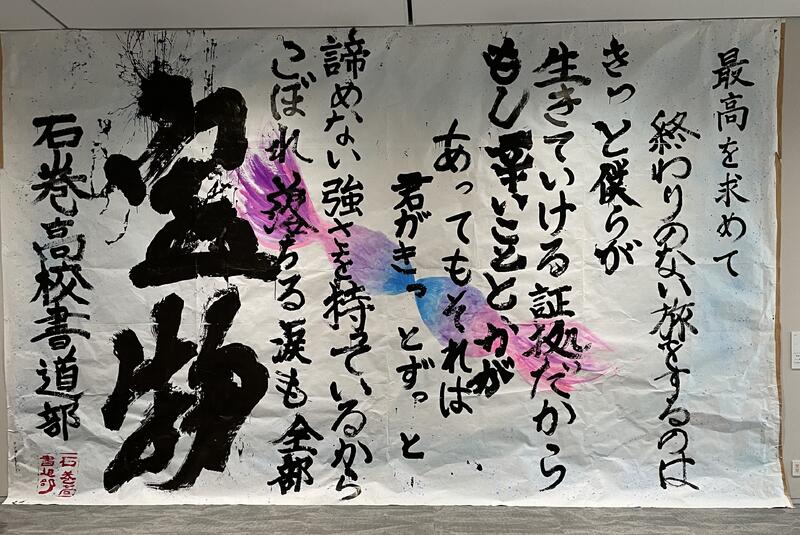 最高を求めて
終わりのない旅をするのは
きっと僕らが
生きていける証拠だから
もし辛いこととかが
あってもそれは
君がきっとずっと
諦めない強さを持っているから
こぼれ落ちる涙も全部
宝物
石巻高校書道部
石巻高
書道部